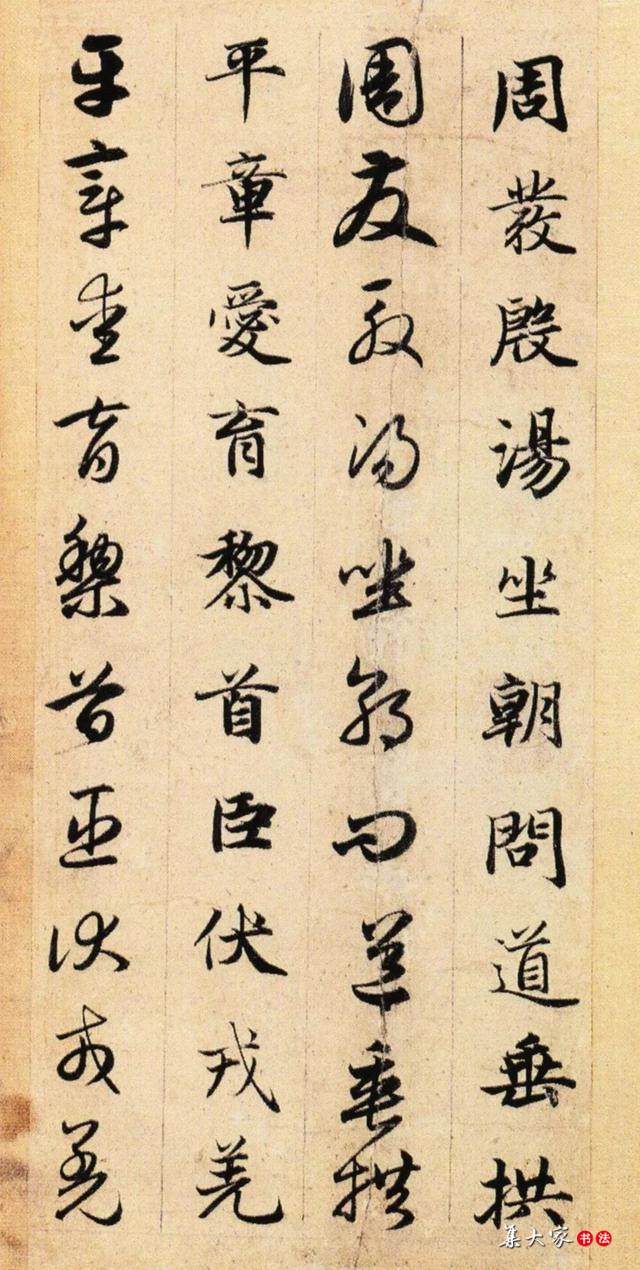 周發殷湯坐朝問道垂拱
周發殷湯坐朝問道垂拱
平章愛育黎首臣伏戎羌
平章愛育黎首臣伏戎羌
集大家书法